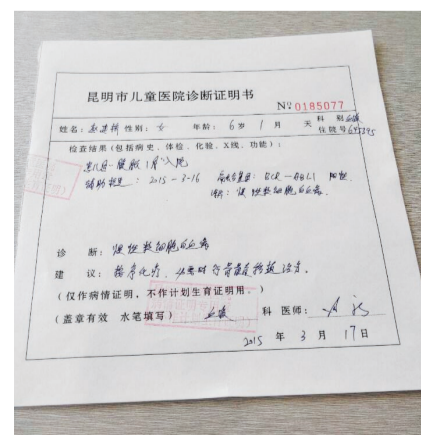 昆明市儿童医院诊断证明书
Nº 0185077
姓名: 性别: 女 年龄: 6岁1月 天 科别 血液
住院号
检查结果(包括病史、体检、化验、X线、功能):
患儿因"腹胀1月"入院
辅助检查: 2015-3-16 融合基因: BCR-ABL1 阳性.
诊: 慢性粒细胞白血病.
诊 断: 慢性粒细胞白血病
建 议: 化疗、必要时行骨髓移植治疗.
(仅作病情证明,不作计划生育证明用。)
(盖章有效 水笔填写) 血液 科 医师:
2015 年 3 月 17日